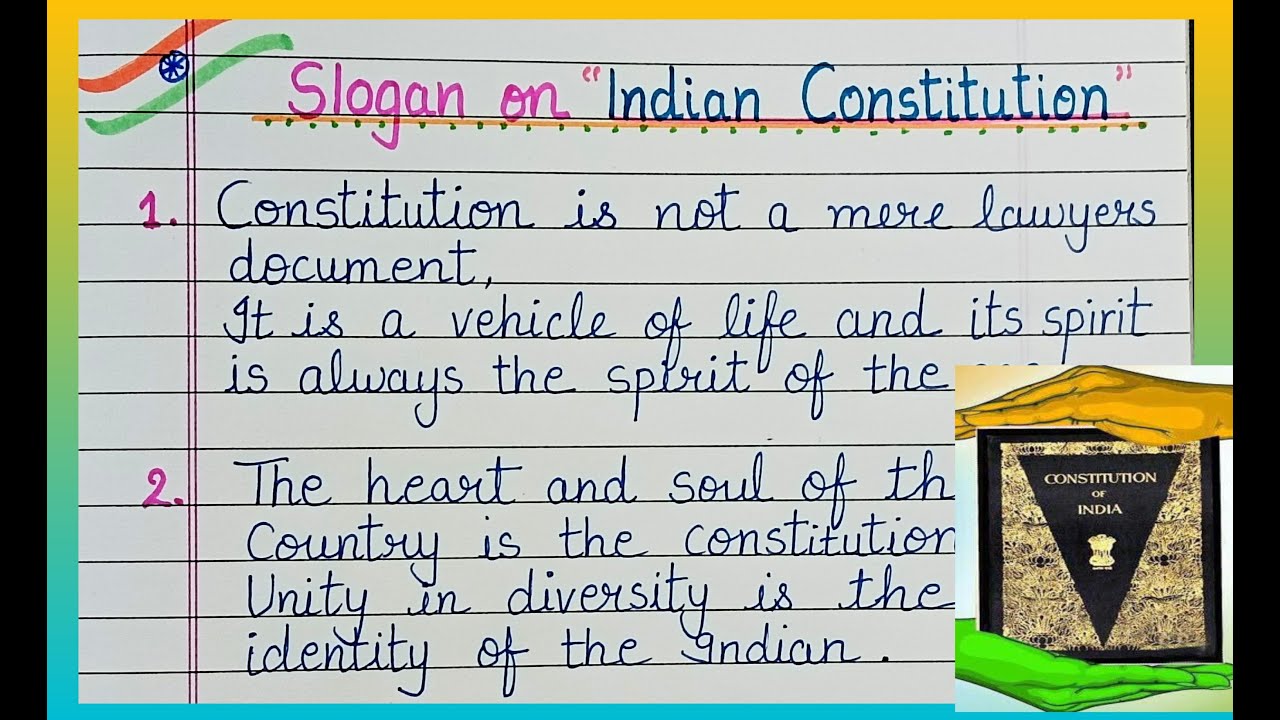 Slogan on "Indian Constitution"
1. Constitution is not a mere lawyers
document,
It is a vehicle of life and its spirit
is always the spirit of the
2. The heart and soul of
Country is the constitution
Unity in diversity is the
identity of the Indian.
CONSTITUTION
OF
INDIA